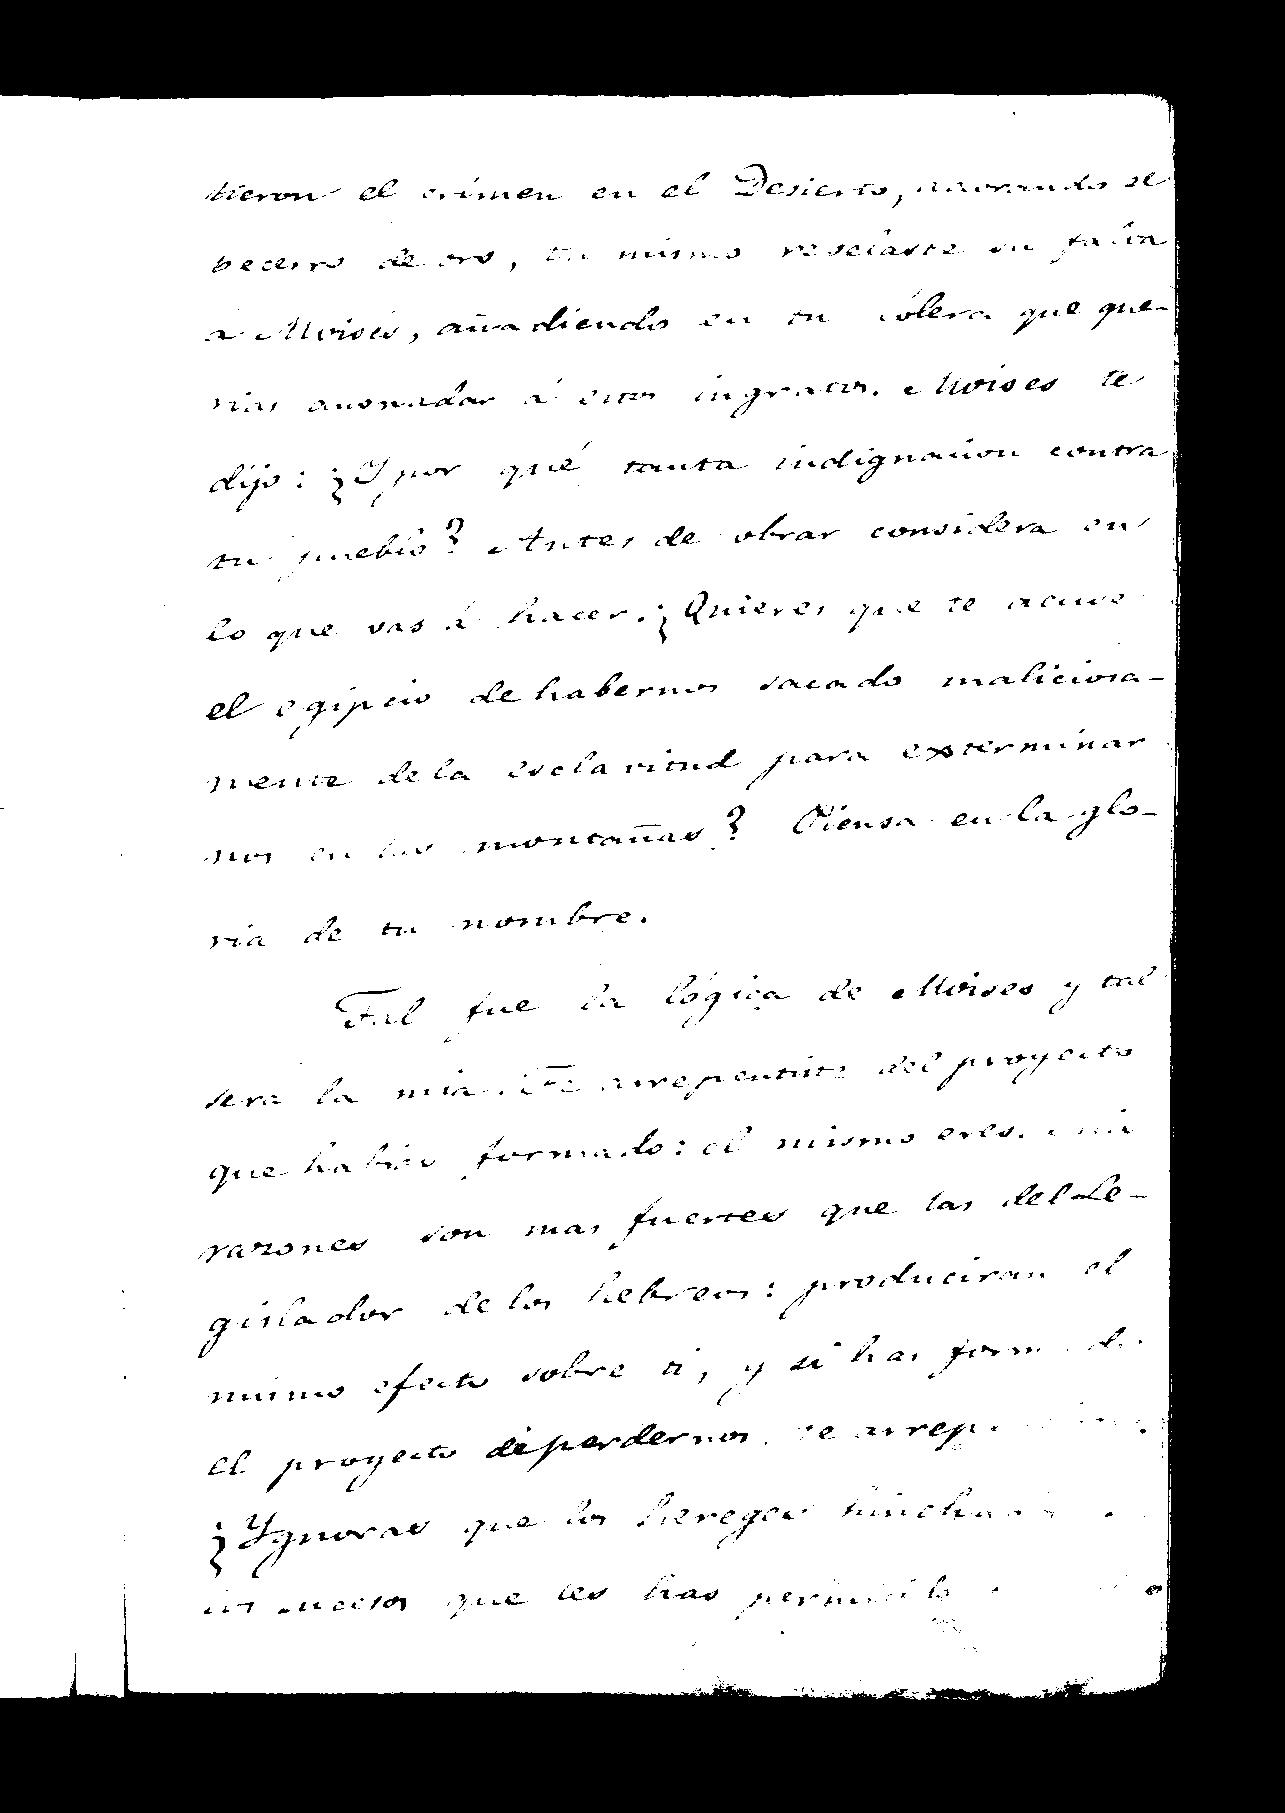 tieron el crímen en el Desierto, adorando el
becerro de oro, tu mismo revelaste su falta
a Moisés, añadiendo en tu cólera que que-
rias anonadar á estos ingratos. Moises te
dijo: ¿Y por qué tanta indignacion contra
tu pueblo? Antes de obrar considera en
lo que vas á hacer. ¿Quieres que te acuse
el egipcio de habernos sacado maliciosa-
mente de la esclavitud para exterminar
nos en las montañas? Piensa en la glo-
ria de tu nombre.
Tal fue la lógica de Moises y tal
sera la mia. Te arrepentiste del proyecto
que habias formado: el mismo eres. mis
razones son mas fuertes que las del Le-
gislador de los hebreos: produciran el
mismo efecto sobre ti, y si has formado
el proyecto de perdernos, te
¿Ygnoras que los hereges
sucesos que les has